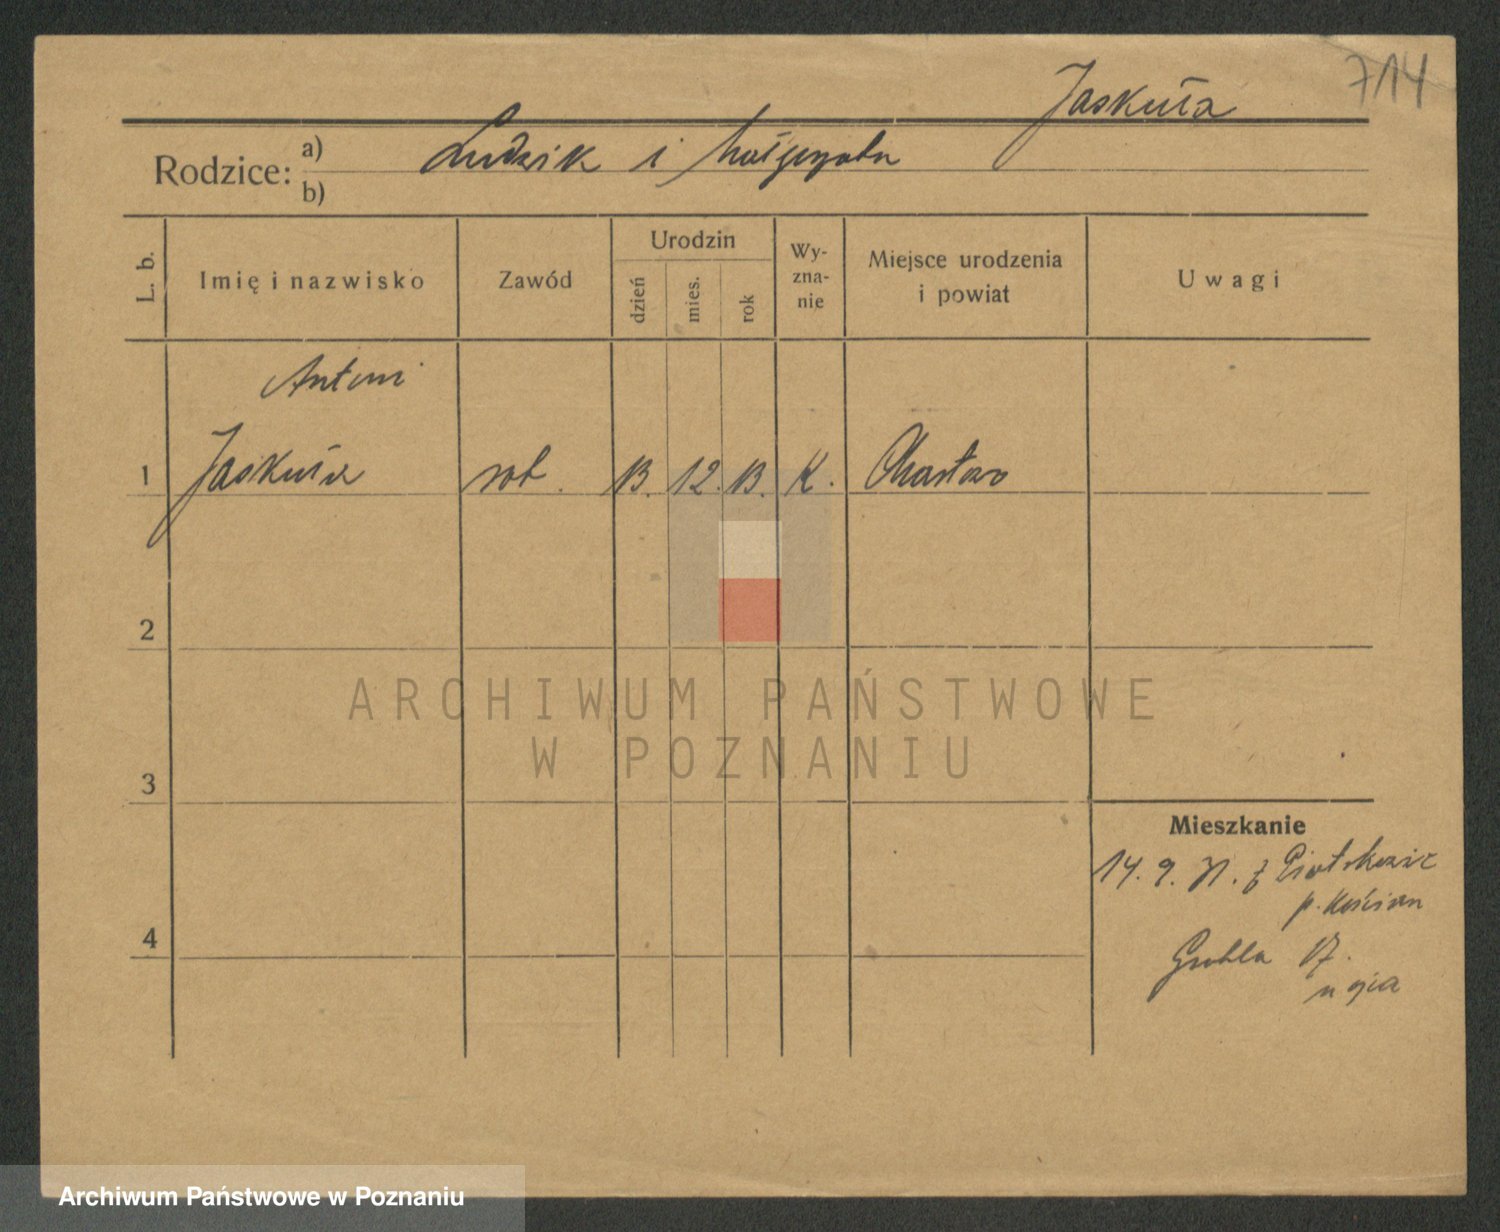 714
Jaskuła
Rodzice: a) Ludwik i Małgorzata
b)
L. b.
Imię i nazwisko
Zawód
Urodzin
dzień
mies.
rok
Wy-
zna-
nie
Miejsce urodzenia
i powiat
Uwagi
Antoni
1 Jaskuła rob. 13. 12. 13. K.
2
3
4
ARCHIWUM PAŃSTWOWE
W POZNANIU
Mieszkanie
14. 9. 31. z
p. Kościan
Grobla 17.
u ojca
Archiwum Państwowe w Poznaniu